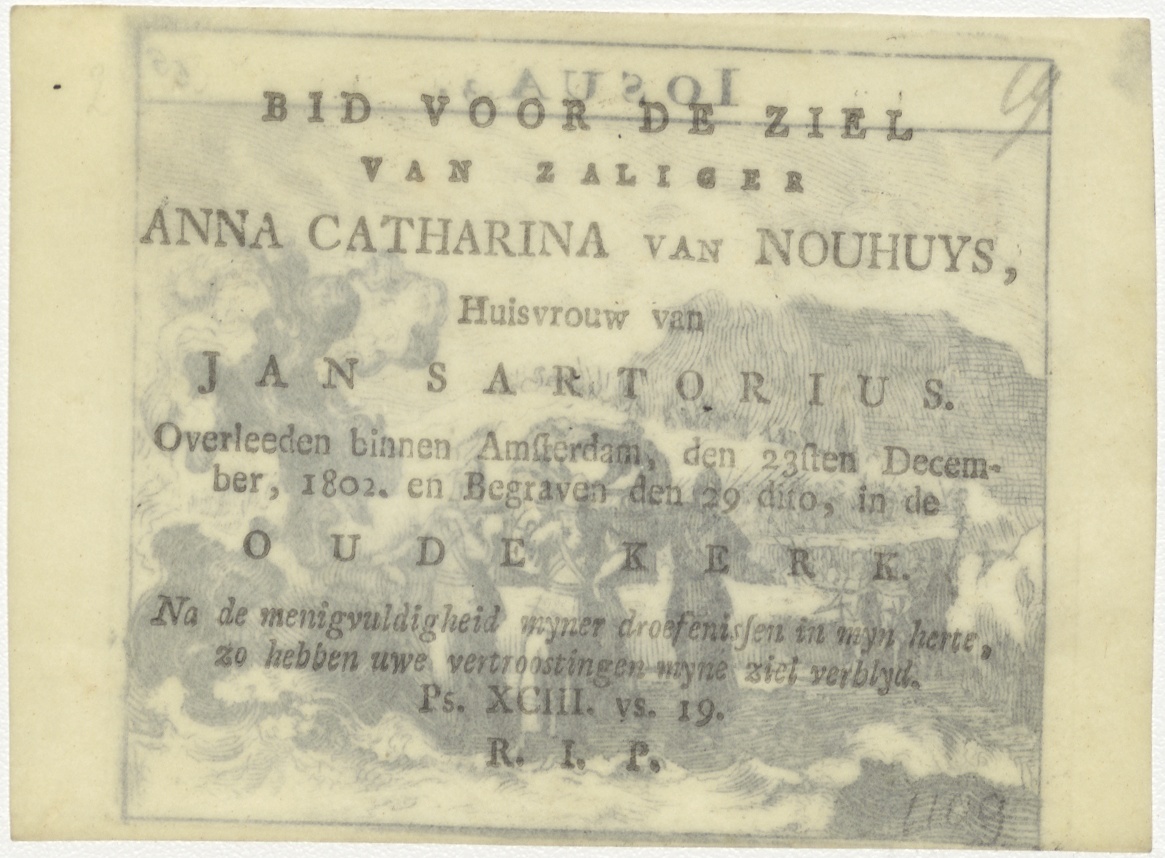 BID VOOR DE ZIEL
VAN ZALIGER
ANNA CATHARINA VAN NOUHUYS,
Huisvrouw van
JAN SARTORIUS.
Overleeden binnen Amſterdam, den 23ſten Decem-
ber, 1802. en Begraven den 29 dito, in de
OUDE KERK.
Na de menigvuldigheid myner droefeniſſen in myn herte,
zo hebben uwe vertroostingen myne ziel verblyd.
Ps. XCIII. vs. 19.
R. I. P.